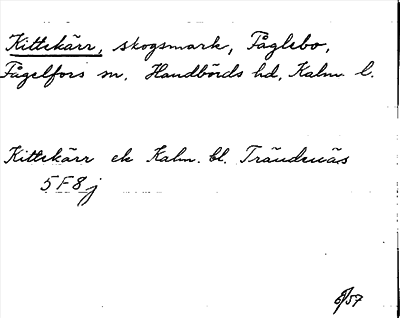 Kittekärr, skogsmark, Fåglebo,
Fågelfors sn, Handbörds hd, Kalm. l.
Kittekärr ek Kalm. bl. Trändenäs
5F8j